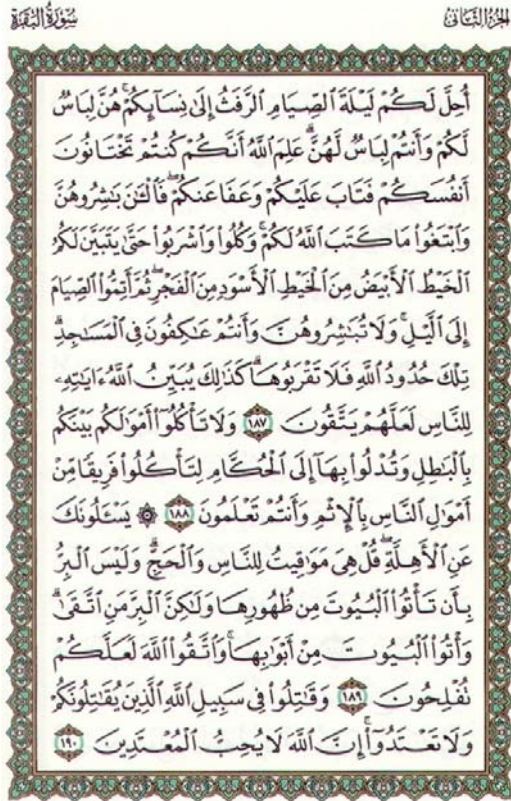 الجزء الثاني
سورة البقرة
أُحِلَّ لَكُمْ لَيْلَةَ ٱلصِّيَامِ ٱلرَّفَثُ إِلَىٰ نِسَآئِكُمْ ۚ هُنَّ لِبَاسٌ
لَّكُمْ وَأَنتُمْ لِبَاسٌ لَّهُنَّ ۗ عَلِمَ ٱللَّهُ أَنَّكُمْ كُنتُمْ تَخْتَانُونَ
أَنفُسَكُمْ فَتَابَ عَلَيْكُمْ وَعَفَا عَنكُمْ ۖ فَٱلْـَٰٔنَ بَـٰشِرُوهُنَّ
وَٱبْتَغُوا۟ مَا كَتَبَ ٱللَّهُ لَكُمْ ۚ وَكُلُوا۟ وَٱشْرَبُوا۟ حَتَّىٰ يَتَبَيَّنَ لَكُمُ
ٱلْخَيْطُ ٱلْأَبْيَضُ مِنَ ٱلْخَيْطِ ٱلْأَسْوَدِ مِنَ ٱلْفَجْرِ ۖ ثُمَّ أَتِمُّوا۟ ٱلصِّيَامَ
إِلَى ٱلَّيْلِ ۚ وَلَا تُبَـٰشِرُوهُنَّ وَأَنتُمْ عَـٰكِفُونَ فِى ٱلْمَسَـٰجِدِ ۗ
تِلْكَ حُدُودُ ٱللَّهِ فَلَا تَقْرَبُوهَا ۗ كَذَٰلِكَ يُبَيِّنُ ٱللَّهُ ءَايَـٰتِهِۦ
لِلنَّاسِ لَعَلَّهُمْ يَتَّقُونَ ١٨٧ وَلَا تَأْكُلُوٓا۟ أَمْوَٰلَكُم بَيْنَكُم
بِٱلْبَـٰطِلِ وَتُدْلُوا۟ بِهَآ إِلَى ٱلْحُكَّامِ لِتَأْكُلُوا۟ فَرِيقًا مِّنْ
أَمْوَٰلِ ٱلنَّاسِ بِٱلْإِثْمِ وَأَنتُمْ تَعْلَمُونَ ١٨٨ ۞ يَسْـَٔلُونَكَ
عَنِ ٱلْأَهِلَّةِ ۖ قُلْ هِىَ مَوَٰقِيتُ لِلنَّاسِ وَٱلْحَجِّ ۗ وَلَيْسَ ٱلْبِرُّ
بِأَن تَأْتُوا۟ ٱلْبُيُوتَ مِن ظُهُورِهَا وَلَـٰكِنَّ ٱلْبِرَّ مَنِ ٱتَّقَىٰ ۗ
وَأْتُوا۟ ٱلْبُيُوتَ مِنْ أَبْوَٰبِهَا ۚ وَٱتَّقُوا۟ ٱللَّهَ لَعَلَّكُمْ
تُفْلِحُونَ ١٨٩ وَقَـٰتِلُوا۟ فِى سَبِيلِ ٱللَّهِ ٱلَّذِينَ يُقَـٰتِلُونَكُمْ
وَلَا تَعْتَدُوٓا۟ ۚ إِنَّ ٱللَّهَ لَا يُحِبُّ ٱلْمُعْتَدِينَ ١٩٠